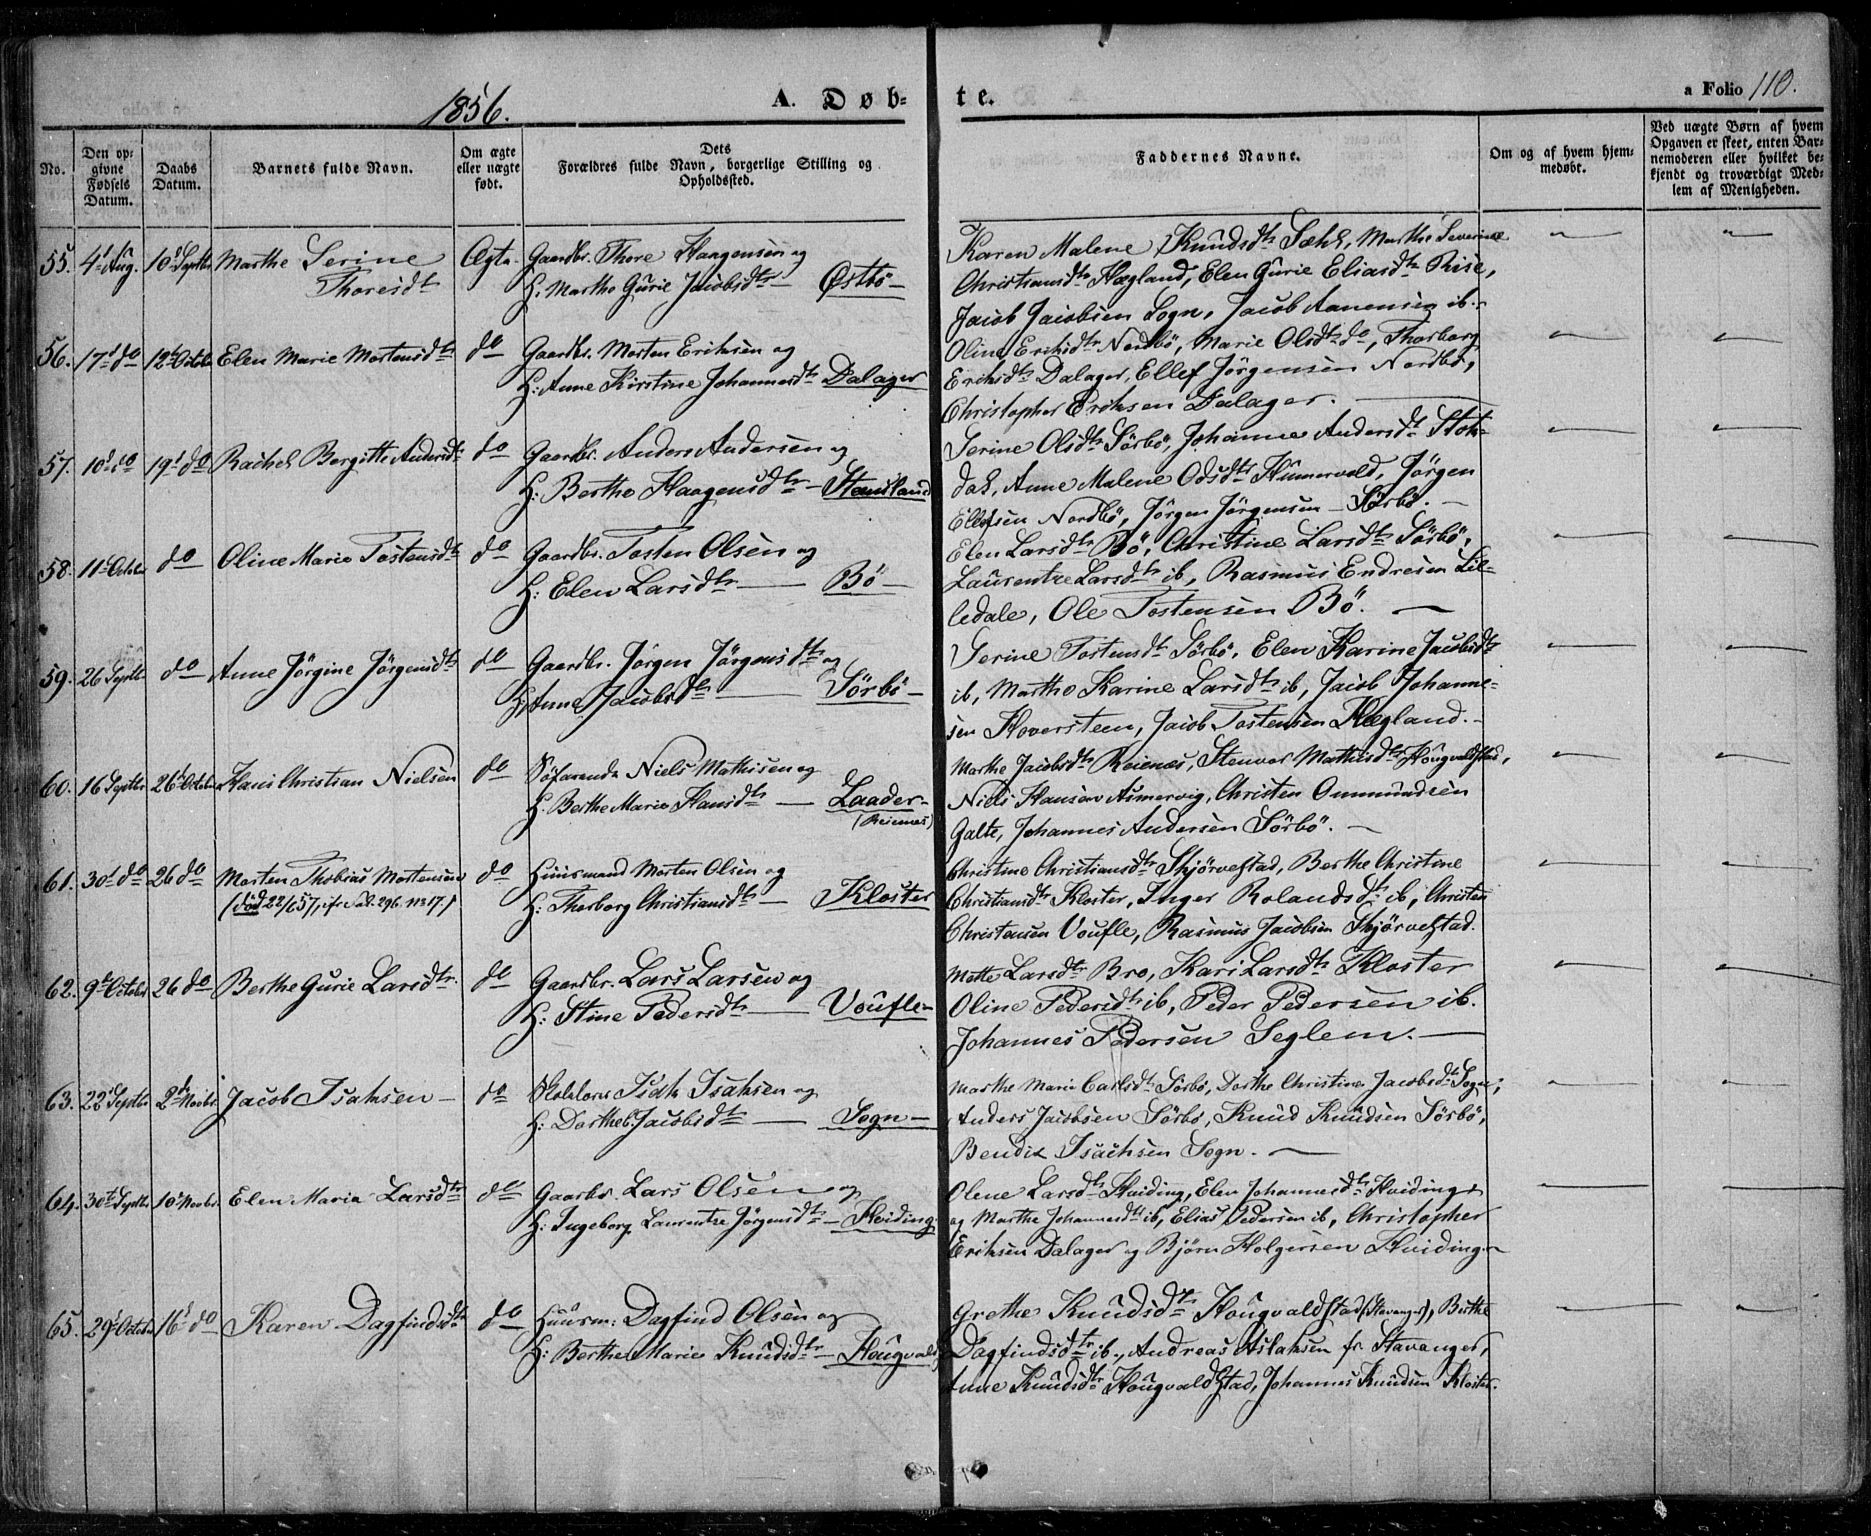 1856.
A. Døb-
te.
a Folio 110.
No.
Den op-
givne
Fødsels
Datum.
Daabs
Datum.
Barnets fulde Navn.
Om ægte
eller uægte
født.
Dets
Forældres fulde Navn, borgerlige Stilling og
Opholdssted.
Faddernes Navne.
Om og af hvem hjem-
medøbt.
Ved uægte Børn af hvem
Opgaven er skeet, enten Bar-
nemoderen eller hvilket be-
kjendt og troværdigt Med-
lem af Menigheden.
55. 4d Aug. 10d Septbr Marthe Serine Ægte Gaardbr. Thore Haagensen og
Thoresdtr H: Marthe Gurie Jacobsdtr — Østbö —
Karen Malene Knudsdtr Sæhl, Marthe Severine
Christiansdtr Hægland, Elen Gurie Eliasdtr Rise,
Jacob Jacobsen Sogn, Jacob Aanensen ib. —
56. 17d do 12t Octobr Elen Marie Mortensdtr do Gaardbr. Morten Eriksen og
H: Anne Kirstine Johannesdtr Dalager
Oline Eriksdtr Nordbö, Marie Olsdtr do, Thorborg
Eriksdtr Dalager, Ellef Jörgensen Nordbö,
Christopher Eriksen Dalager. —
57. 10d do 19d do Rachel Bergitte Andersdtr do Gaardbr. Anders Andersen og
H: Berthe Haagensdtr — Stensland
Serine Olsdtr Sörbö, Johanne Andersdtr Stok-
dal, Anne Malene Odsdtr Hummervold, Jörgen
Ellefsen Nordbö, Jörgen Jörgensen Sörbö. —
58. 11t Octbr do Oline Marie Tostensdtr do Gaardbr. Tosten Olsen og
H: Elen Larsdtr — Bö —
Elen Larsdtr Bö, Christine Larsdtr Sörbö,
Laurentze Larsdtr ib, Rasmus Endresen Lil-
ledale, Ole Tostensen Bö. —
59. 26 Septbr do Anne Jörgine Jörgensdtr do Gaardbr. Jörgen Jörgensdtr og
H: Anne Jacobsdtr — Sörbö —
Serine Tostensdtr Sörbö, Elen Karine Jacobsdtr
ib, Marthe Karine Larsdtr ib, Jacob Johanne-
sen Hoversteen, Jacob Tostensen Hægland. —
60. 16 Septbr 26d Octobr Hans Christian Nielsen do Söfarende Niels Mathisen og
H: Berthe Marie Hansdtr — Laader —
(Reienes)
Marthe Jacobsdtr Reienæs, Stenvor Mathisdtr Hougvaldstad,
Niels Hansen Asmervig, Christen Ommundsen
Galte, Johannes Andersen Sörbö. —
61. 30d do 26 do Morten Thobias Mortensen do Huusmand Morten Olsen og
(död 22/6 57, cfr Fol. 296 No 17.) H: Thorborg Christiansdtr — Kloster
Christine Christiansdtr Skjörvestad, Berthe Christine
Christiansdtr Kloster, Inger Rolandsdtr ib, Christen
Christensen Voufle, Rasmus Jacobsen Skjörvestad.
62. 9de October 26 do Berthe Gurie Larsdtr. do Gaardbr. Lars Larsen og
H: Stine Pedersdtr — Voufle —
Mette Larsdtr Bro, Kari Larsdtr Kloster
Oline Pedersdtr ib, Peder Pedersen ib.
Johannes Pedersen Seglem. —
63. 22d Septbr 2den Novbr. Jacob Isaksen — do Skolelærer Isak Isaksen og
H: Dorthe Jacobsdtr — Sogn —
Marthe Marie Carlsdtr Sörbö, Dorthe Christine Jacobsdtr Sogn,
Anders Jacobsen Sörbö, Knud Knudsen Sörbö,
Bendix Isachsen Sogn. —
64. 30te Septbr 10d Novbr. Elen Maria Larsdtr do Gaarbr. Lars Olsen og
H: Ingeborg Laurentze Jörgensdtr — Hviding.
Olene Larsdtr Hviding, Elen Johannesdtr Hviding
og Marthe Johannesdtr ib, Elias Pedersen ib, Christopher
Eriksen Dalager og Bjørn Holgersen Hviding. —
65. 29d October 16d do Karen Dagfindsdtr do Huusm: Dagfind Olsen og
H: Berthe Marie Knudsdtr — Hougvalds
Grethe Knudsdtr Hougvaldstad (Stavanger), Berthe
Dagfindsdtr ib., Andreas Aslaksen fr Stavanger,
Anne Knudsdtr Hougvaldstad, Johannes Knudsen Kloster.